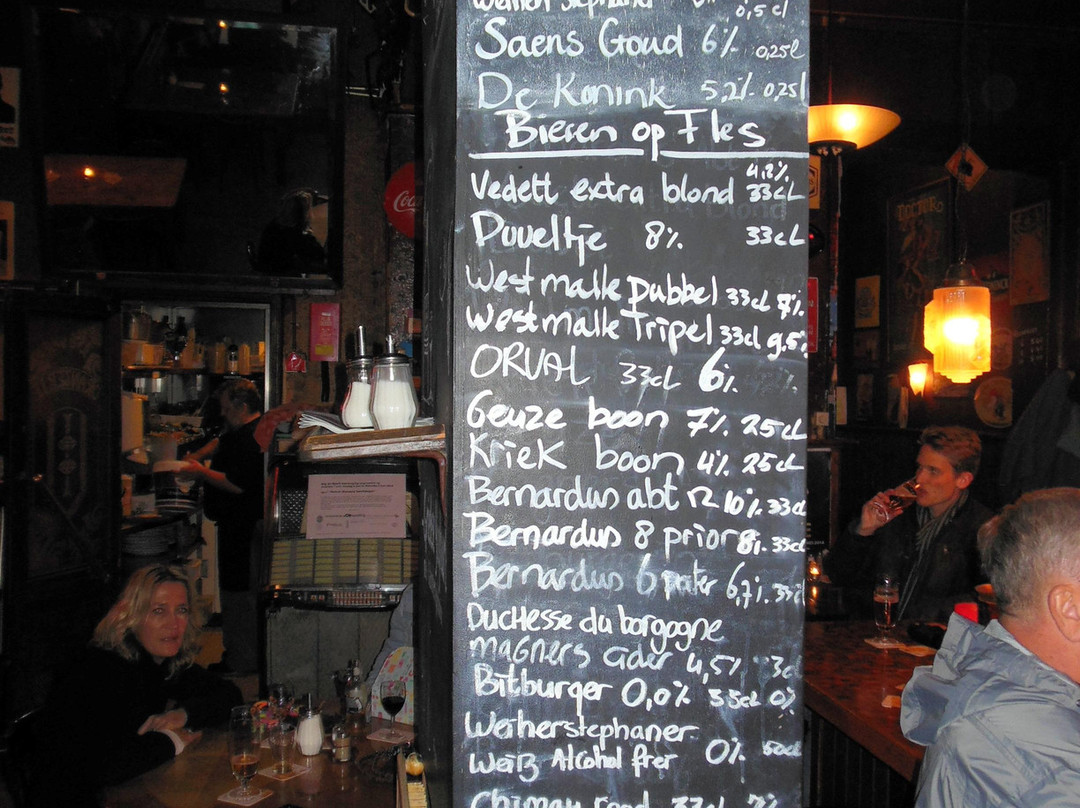 0,5 cl
Saens Goud 6% 0,25l
De Konink 5,2% 0,25l
Bieren op Fles
Vedett extra blond 4.2% 33cL
Duveltje 8% 33cL
Westmalle Dubbel 33cl 7%
Westmalle Tripel 33cl 9.5%
ORVAL 33cL 6%
Geuze boon 7% 25cL
Kriek boon 4% 25cL
Bernardus abt 12 10% 33cl
Bernardus 8 prior 8% 33cl
Bernardus 6 pater 6,7%
Duchesse du borgogne
magners cider 4,5%
Bitburger 0,0% 33cL 0%
Weiherstephaner
Weiß Alcohol frei 0% 50cl
chimay rood 33cl 7%